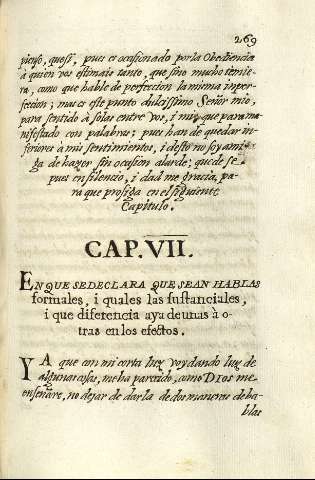 269
pues es ocasionado por la Obediencia
à quien vos estimais tanto, que sino mucho temie-
ra, como que hable de perfeccion la misma imper-
feccion; mas es este punto dulcissimo Señor mio,
para sentido à solas entre vos, i mi, que para ma-
nifestado con palabras; pues han de quedar in-
feriores à mis sentimientos, i desto no soy ami-
ga de hazer sin ocasion alarde; quedese
pues en silencio, i dad me gracia, pa-
ra que prosiga en el siguiente
Capitulo.
CAP. VII.
EN QUE SE DECLARA QUE SEAN HABLAS
formales, i quales las sustanciales,
i que diferencia aya de unas à o-
tras en los efectos.
YA que con mi corta luz voy dando luz de
algunas cosas, me ha parecido, como DIos me-
enseñare, no dejar de darla de dos maneras de ha-
blas